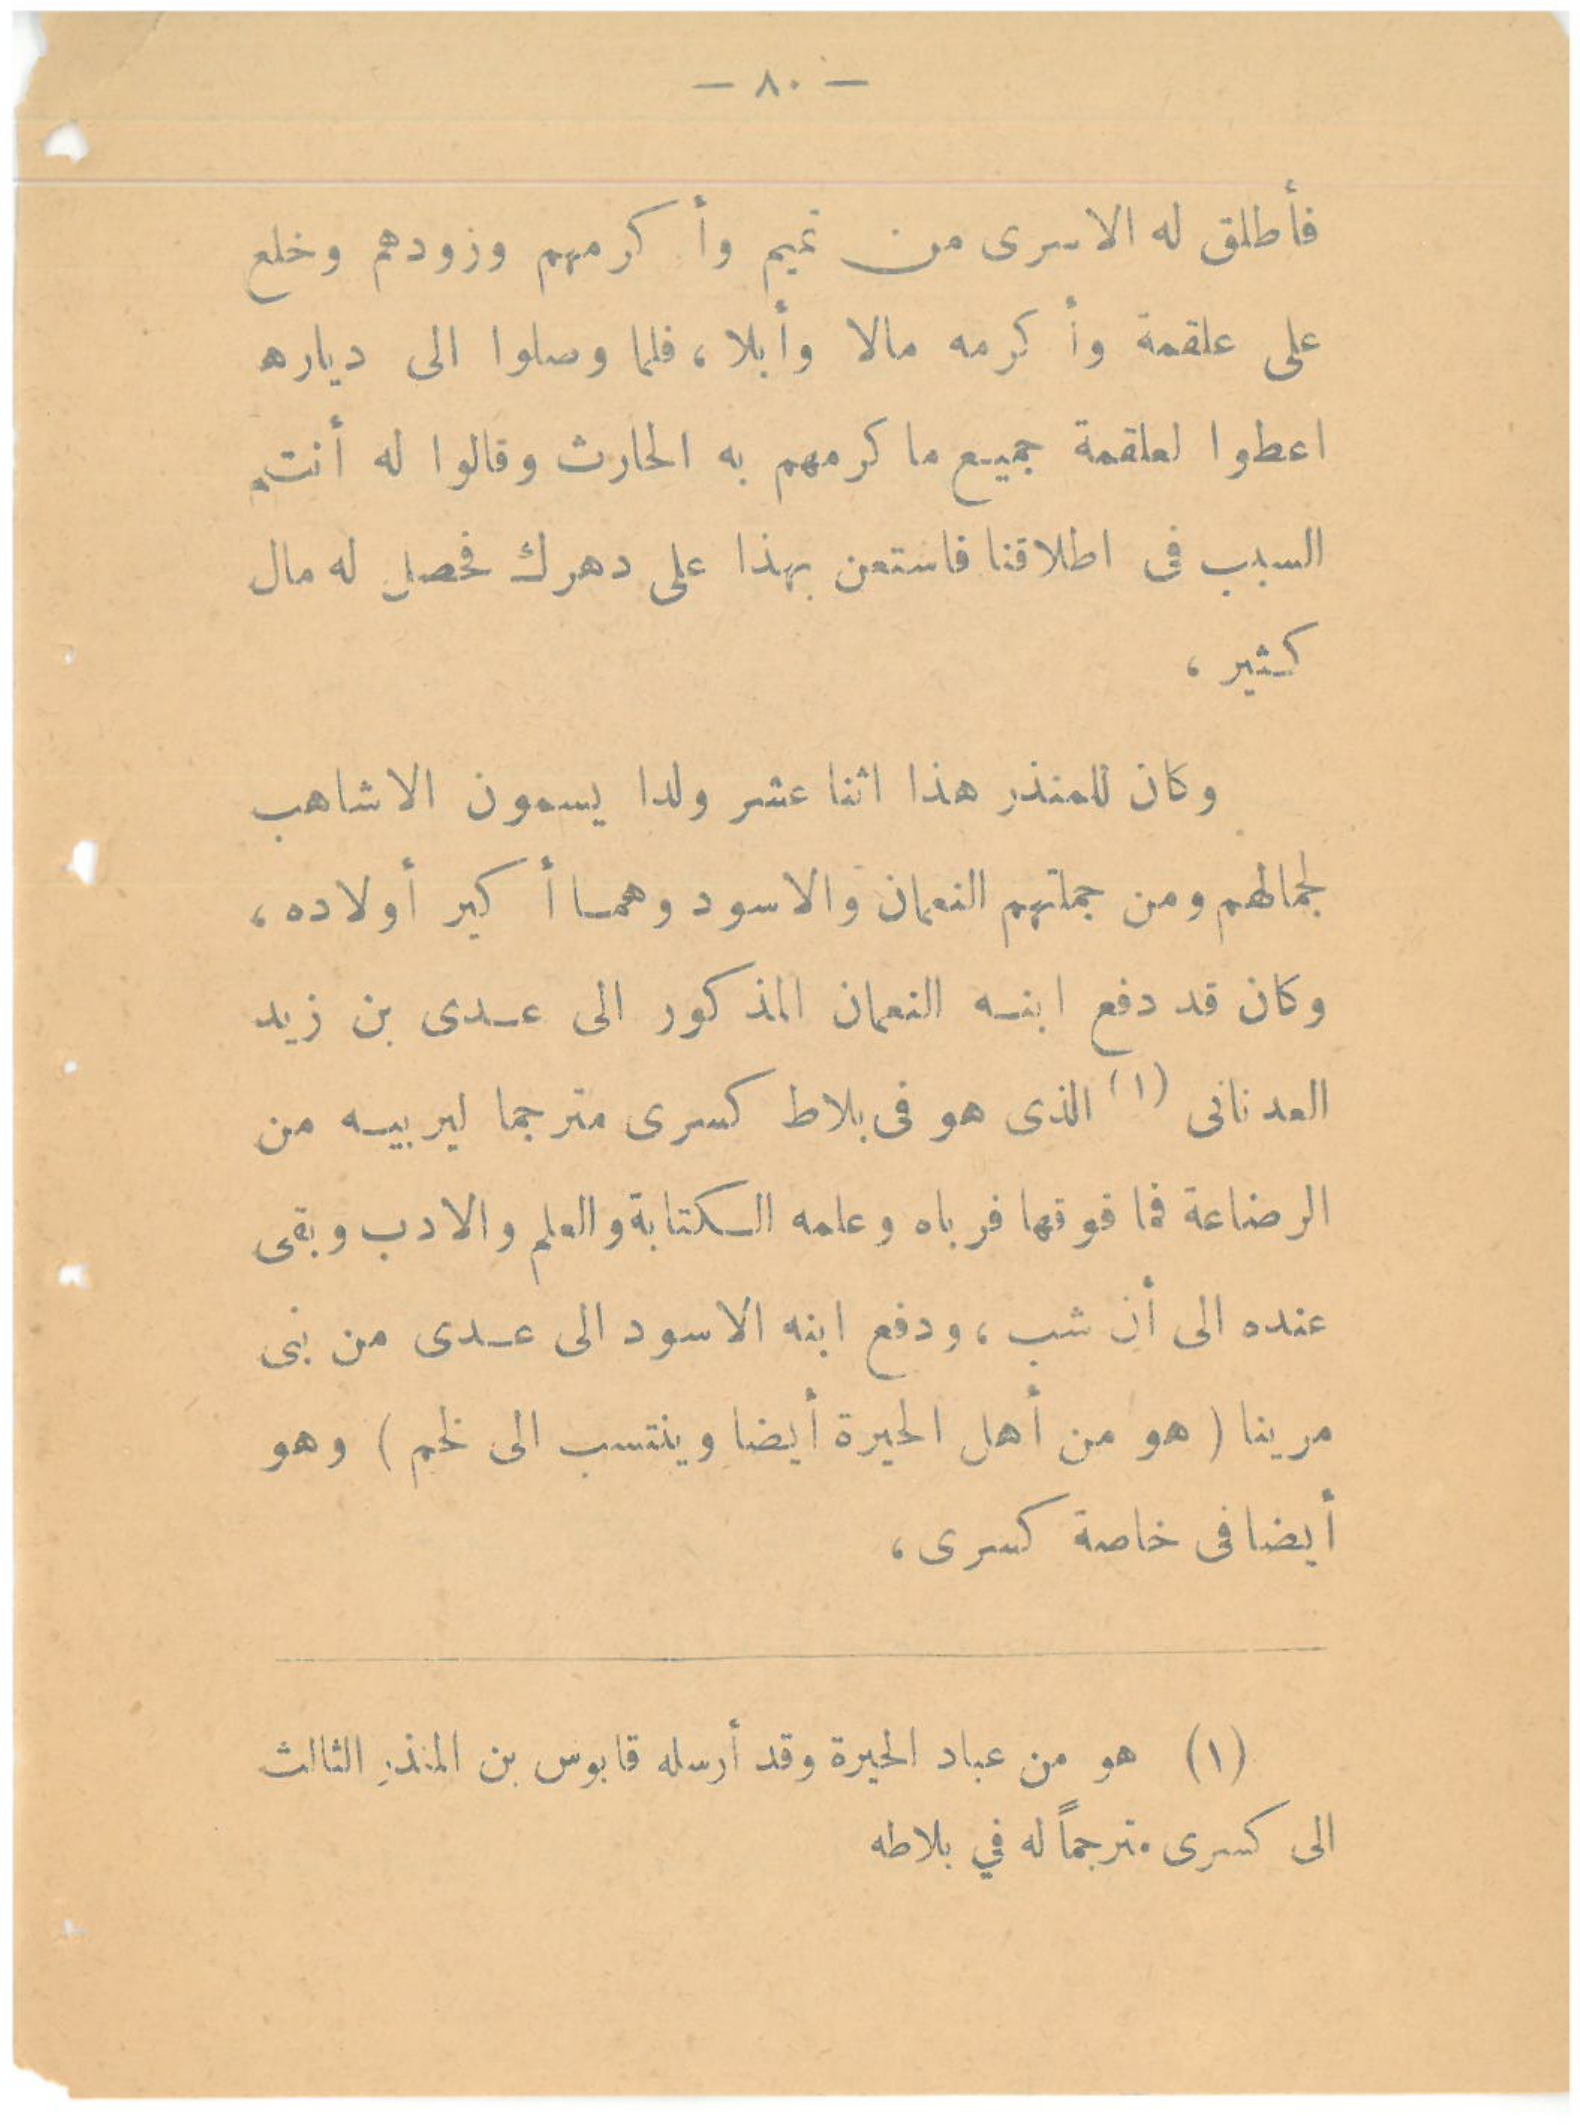 — ٨٠ —
فأطلق له الاسرى من تميم وأكرمهم وزودهم وخلع
على علقمة وأكرمه مالا وأبلا، فلما وصلوا الى دياره
اعطوا لعلقمة جميع ما كرمهم به الحارث وقالوا له أنت
السبب فى اطلاقنا فاستعن بهذا على دهرك فحصل له مال
كثير ،
وكان للمنذر هذا اثنا عشر ولدا يسمون الاشاهب
لجمالهم ومن جملتهم النعمان والاسود وهما أكبر أولاده ،
وكان قد دفع ابنه النعمان المذكور الى عدى بن زيد
العدنانى (١) الذى هو فى بلاط كسرى مترجما ليربيه من
الرضاعة فما فوقها فرباه وعلمه الكتابة والعلم والادب وبقى
عنده الى أن شب ، ودفع ابنه الاسود الى عدى من بنى
مرينا ( هو من أهل الحيرة أيضا وينتسب الى لخم ) وهو
أيضا فى خاصة كسرى ،
(١) هو من عباد الحيرة وقد أرسله قابوس بن المنذر الثالث
الى كسرى مترجماً له في بلاطه